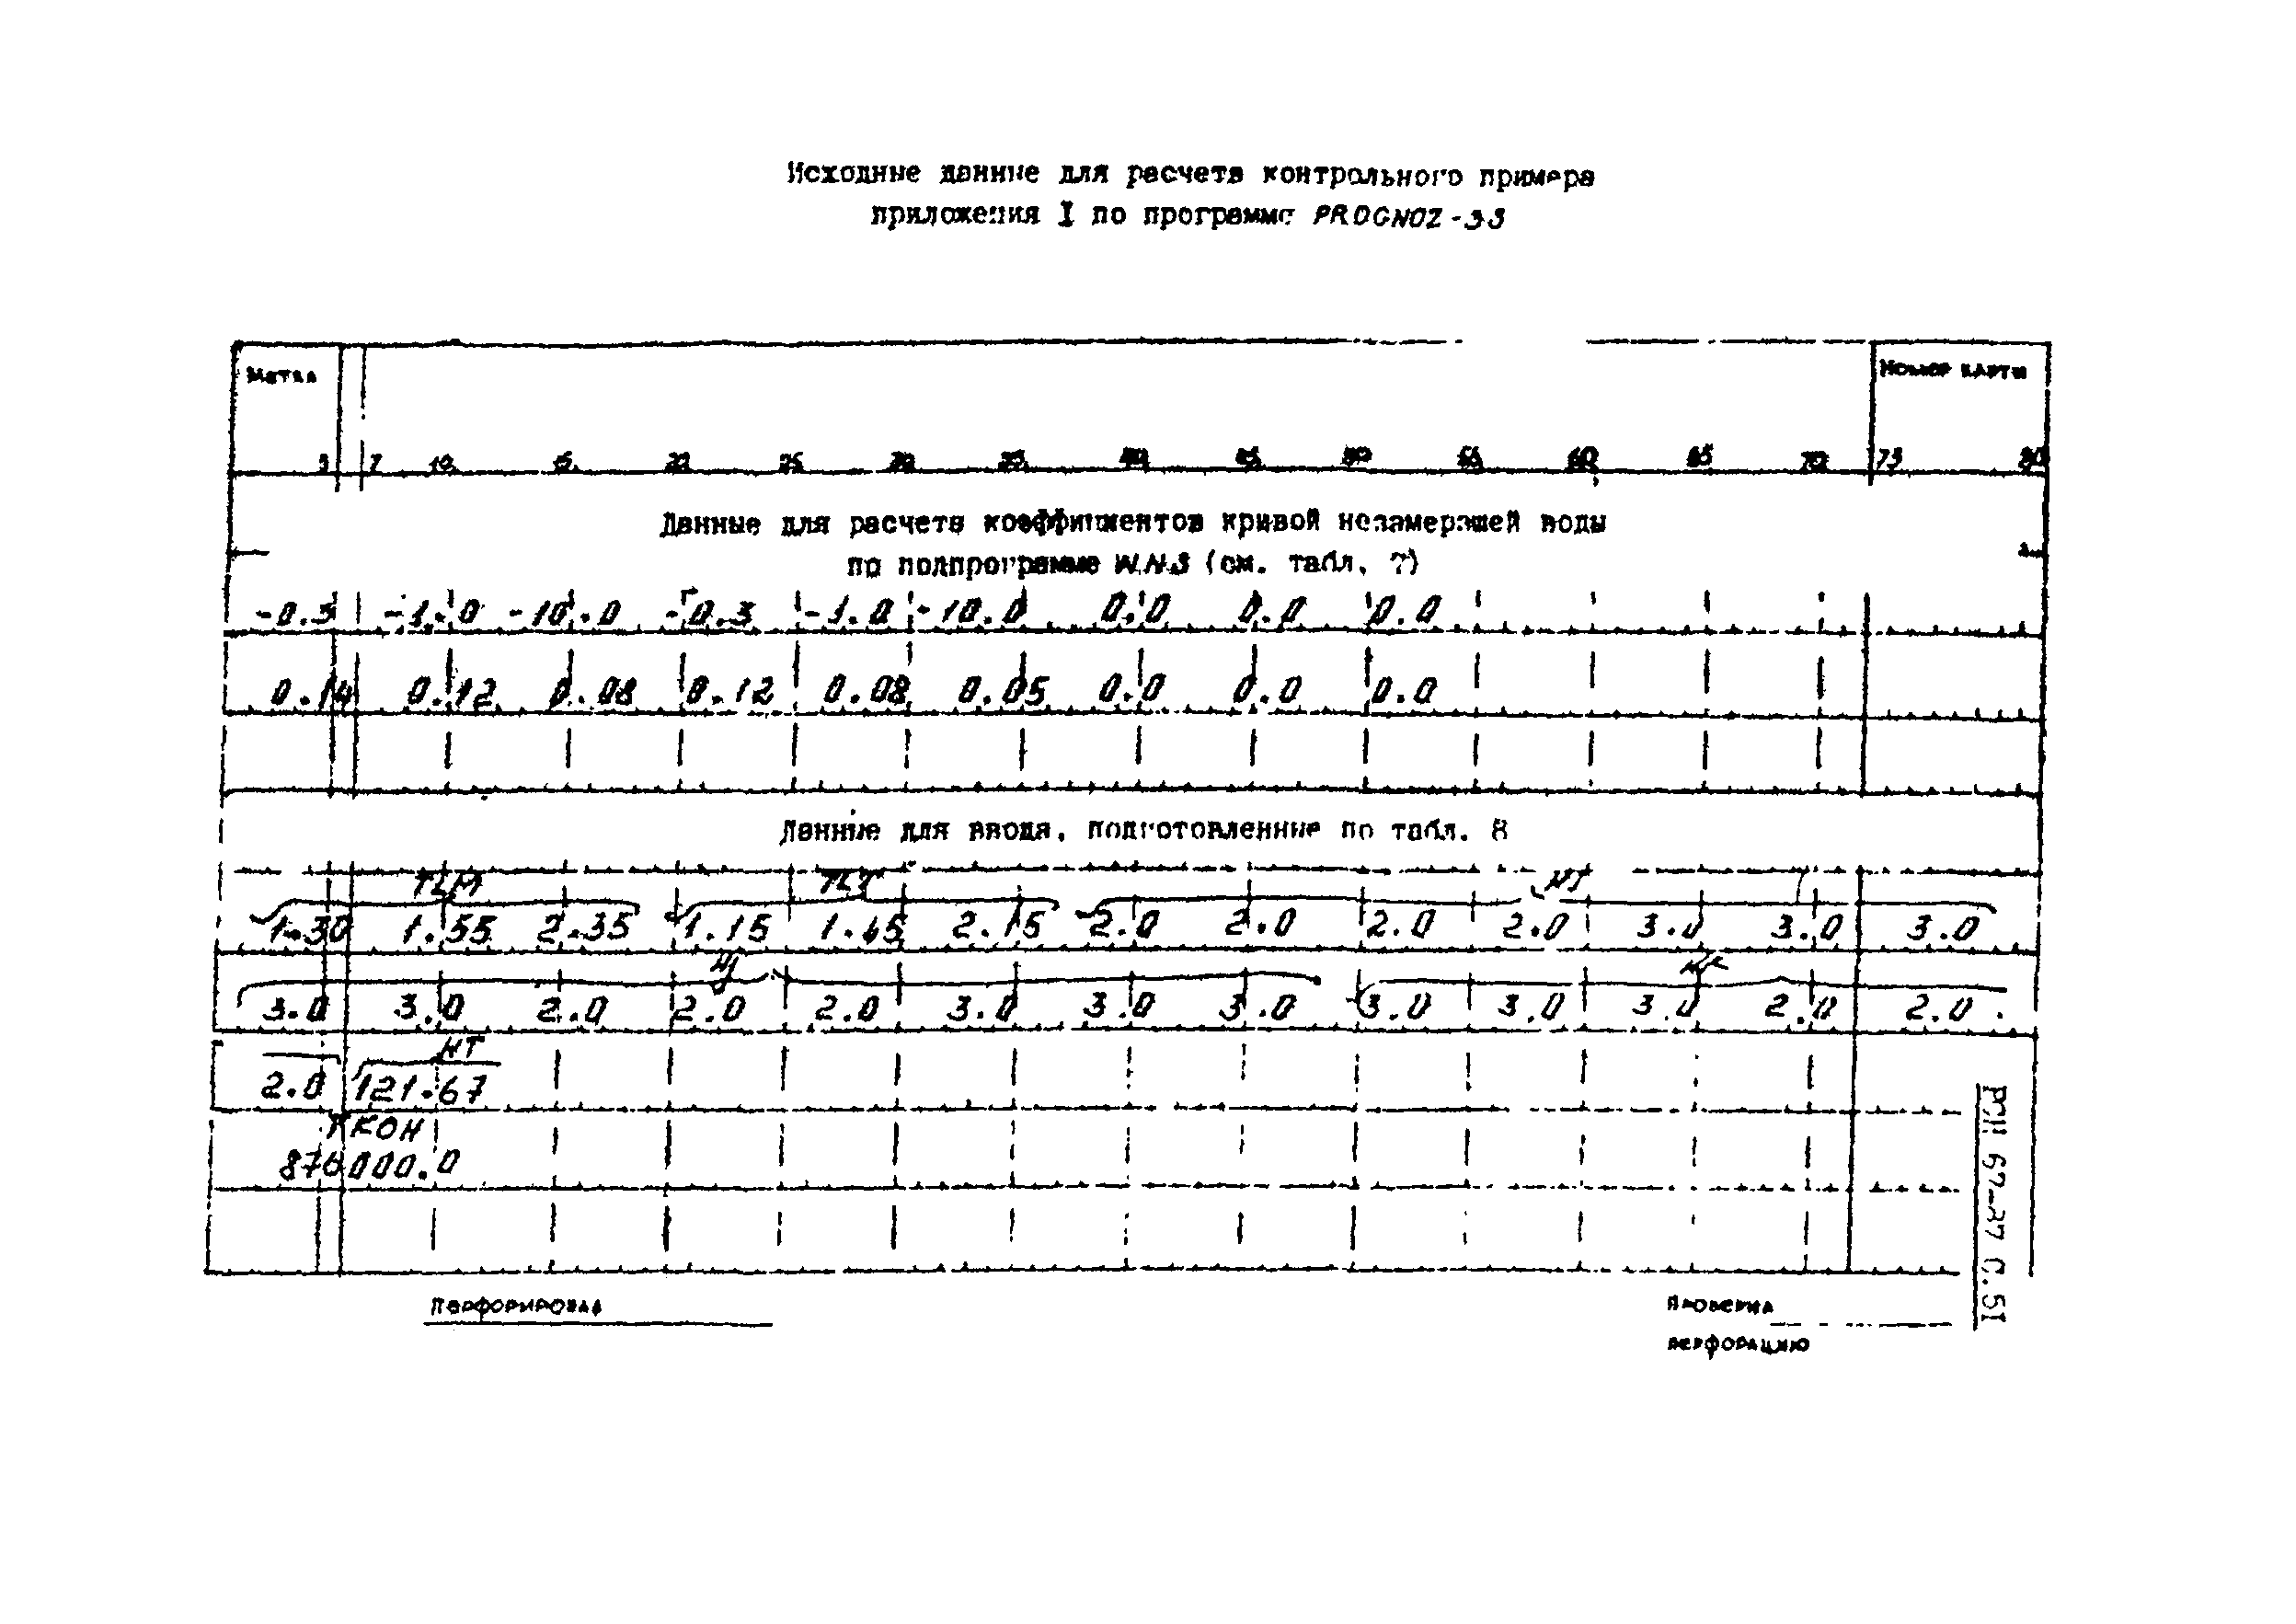 Исходные данные для расчета контрольного примера
приложения I по программе PROGNOZ-33
Метка Номер карты
5 7 10 15 20 25 30 35 40 45 50 55 60 65 70 73 80
Данные для расчета коэффициентов кривой незамерзшей воды
по подпрограмме WNS (см. табл. 7)
-0.3 -1.0 -10.0 -0.3 -1.0 -10.0 0.0 0.0 0.0
0.14 0.12 0.08 0.12 0.08 0.05 0.0 0.0 0.0
Данные для ввода, подготовленные по табл. 8
TLM TLT NI
1.30 1.55 2.35 1.15 1.45 2.15 2.0 2.0 2.0 2.0 3.0 3.0 3.0
NJ NK
3.0 3.0 2.0 2.0 2.0 3.0 3.0 3.0 3.0 3.0 3.0 2.0 2.0
HT
2.0 121.67
TKOH
876000.0
РСН 67-87 С.51
Перфорировал Проверил
перфорацию